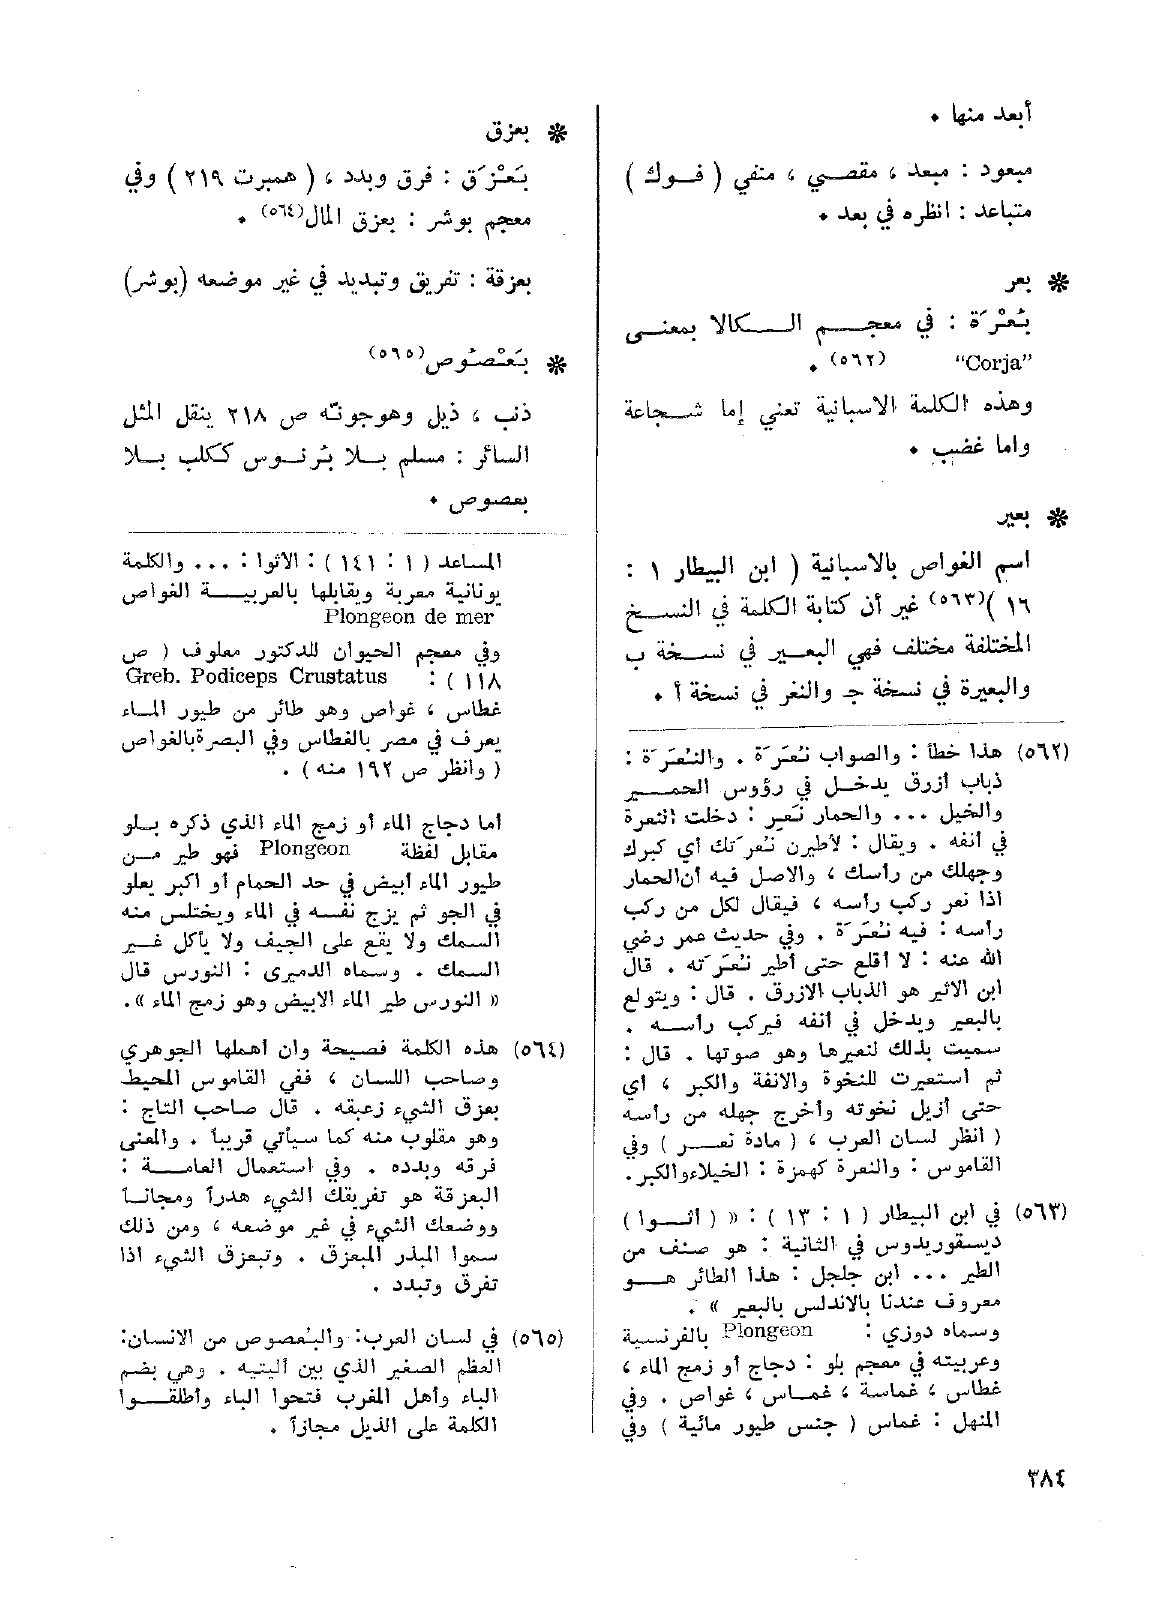 أبعد منها .
مبعود : مبعد ، مقصي ، منفي ( فوك )
متباعد : انظره في بعد .
* بعر
بُعْرَة : في معجم الكالا بمعنى
“Corja” (٥٦٢) .
وهذه الكلمة الاسبانية تعني إما شجاعة
واما غضب .
* بعير
اسم الغواص بالاسبانية ( ابن البيطار ١ :
١٦ )(٥٦٣) غير أن كتابة الكلمة في النسخ
المختلفة مختلف فهي البعير في نسخة ب
والبعيرة في نسخة جـ والنغر في نسخة أ .
(٥٦٢) هذا خطأ : والصواب نُعَرَة . والنُعَرَة :
ذباب أزرق يدخل في رؤوس الحمير
والخيل ... والحمار نَعِر : دخلت النعرة
في أنفه . ويقال : لأطيرن نُعرَتك أي كبرك
وجهلك من رأسك ، والاصل فيه أن الحمار
اذا نعر ركب رأسه ، فيقال لكل من ركب
رأسه : فيه نُعَرَة . وفي حديث عمر رضي
الله عنه : لا أقلع حتى أطير نُعَرَته . قال
ابن الاثير هو الذباب الازرق . قال : ويتولع
بالبعير ويدخل في أنفه فيركب رأسه .
سميت بذلك لنعيرها وهو صوتها . قال :
ثم استعيرت للنخوة والانفة والكبر ، أي
حتى أزيل نخوته وأخرج جهله من رأسه
( انظر لسان العرب ، ( مادة نعر ) وفي
القاموس : والنعرة كهمزة : الخيلاء والكبر .
(٥٦٣) في ابن البيطار ( ١ : ١٣ ) : « ( اثوا )
ديسقوريدوس في الثانية : هو صنف من
الطير ... ابن جلجل : هذا الطائر هو
معروف عندنا بالاندلس بالبعير » .
وسماه دوزي : Plongeon بالفرنسية
وعربيته في معجم بلو : دجاج أو زمج الماء ،
غطاس ، غماسة ، غماس ، غواص . وفي
المنهل : غماس ( جنس طيور مائية ) وفي
* بعزق
بَعْزَق : فرق وبدد ، ( همبرت ٢١٩ ) وفي
معجم بوشر : بعزق المال(٥٦٤) .
بعزقة : تفريق وتبديد في غير موضعه (بوشر)
* بَعْصُوص(٥٦٥)
ذنب ، ذيل وهوجونه ص ٢١٨ ينقل المثل
السائر : مسلم بلا بُرنوس ككلب بلا
بعصوص .
المساعد ( ١ : ١٤١ ) : الاثوا : ... والكلمة
يونانية معربة ويقابلها بالعربية الغواص
Plongeon de mer
وفي معجم الحيوان للدكتور معلوف ( ص
١١٨ ) : Greb. Podiceps Crustatus
غطاس ، غواص وهو طائر من طيور الماء
يعرف في مصر بالغطاس وفي البصرة بالغواص
( وانظر ص ١٩٢ منه ) .
أما دجاج الماء أو زمج الماء الذي ذكره بلو
مقابل لفظة Plongeon فهو طير من
طيور الماء أبيض في حد الحمام أو اكبر يعلو
في الجو ثم يزج نفسه في الماء ويختلس منه
السمك ولا يقع على الجيف ولا يأكل غير
السمك . وسماه الدميرى : النورس قال
« النورس طير الماء الابيض وهو زمج الماء » .
(٥٦٤) هذه الكلمة فصيحة وان أهملها الجوهري
وصاحب اللسان ، ففي القاموس المحيط
بعزق الشيء زعبقه . قال صاحب التاج :
وهو مقلوب منه كما سيأتي قريباً . والمعنى
فرقه وبدده . وفي استعمال العامة :
البعزقة هو تفريقك الشيء هدراً ومجاناً
ووضعك الشيء في غير موضعه ، ومن ذلك
سموا المبذر المبعزق . وتبعزق الشيء اذا
تفرق وتبدد .
(٥٦٥) في لسان العرب: والبُعصوص من الانسان:
العظم الصغير الذي بين أليتيه . وهي بضم
الباء وأهل المغرب فتحوا الباء وأطلقوا
الكلمة على الذيل مجازاً .
٣٨٤